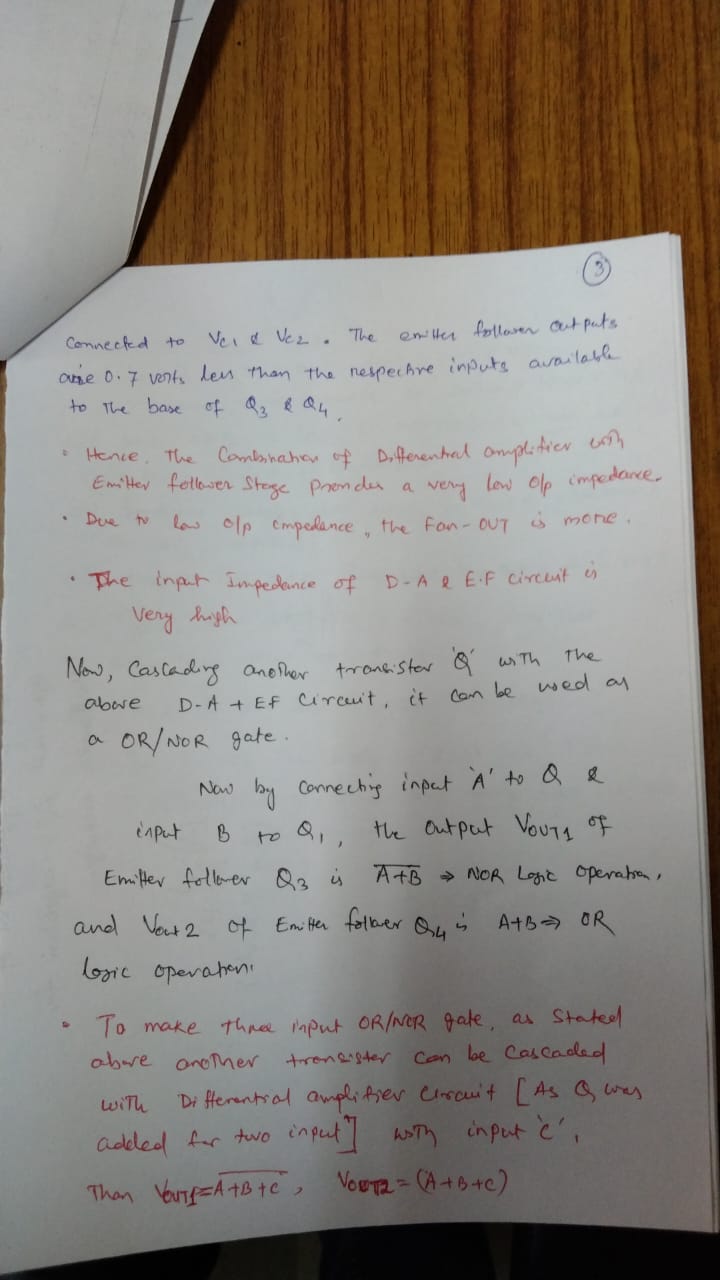 3
Connected to Vc1 & Vc2. The emitter follower outputs
are 0.7 volts less than the respective inputs available
to the base of Q3 & Q4.
• Hence, The Combination of Differential amplifier with
Emitter follower Stage provides a very low o/p impedance.
• Due to low o/p impedance, the Fan-OUT is more.
• The input Impedance of D-A & E.F circuit is
Very high
Now, Cascading another transistor 'Q' with the
above D-A + EF Circuit, it can be used as
a OR/NOR gate.
Now by connecting input 'A' to Q &
input B to Q1, the output VOUT1 of
Emitter follower Q3 is A̅+̅B̅ ⇒ NOR Logic operation,
and Vout2 of Emitter follower Q4 is A+B ⇒ OR
logic operation.
• To make three input OR/NOR gate, as Stated
above another transistor can be cascaded
with Differential amplifier Circuit [As Q was
added for two input] with input 'C',
Than VOUT1=A̅+̅B̅+̅C̅, VOUT2=(A+B+C)